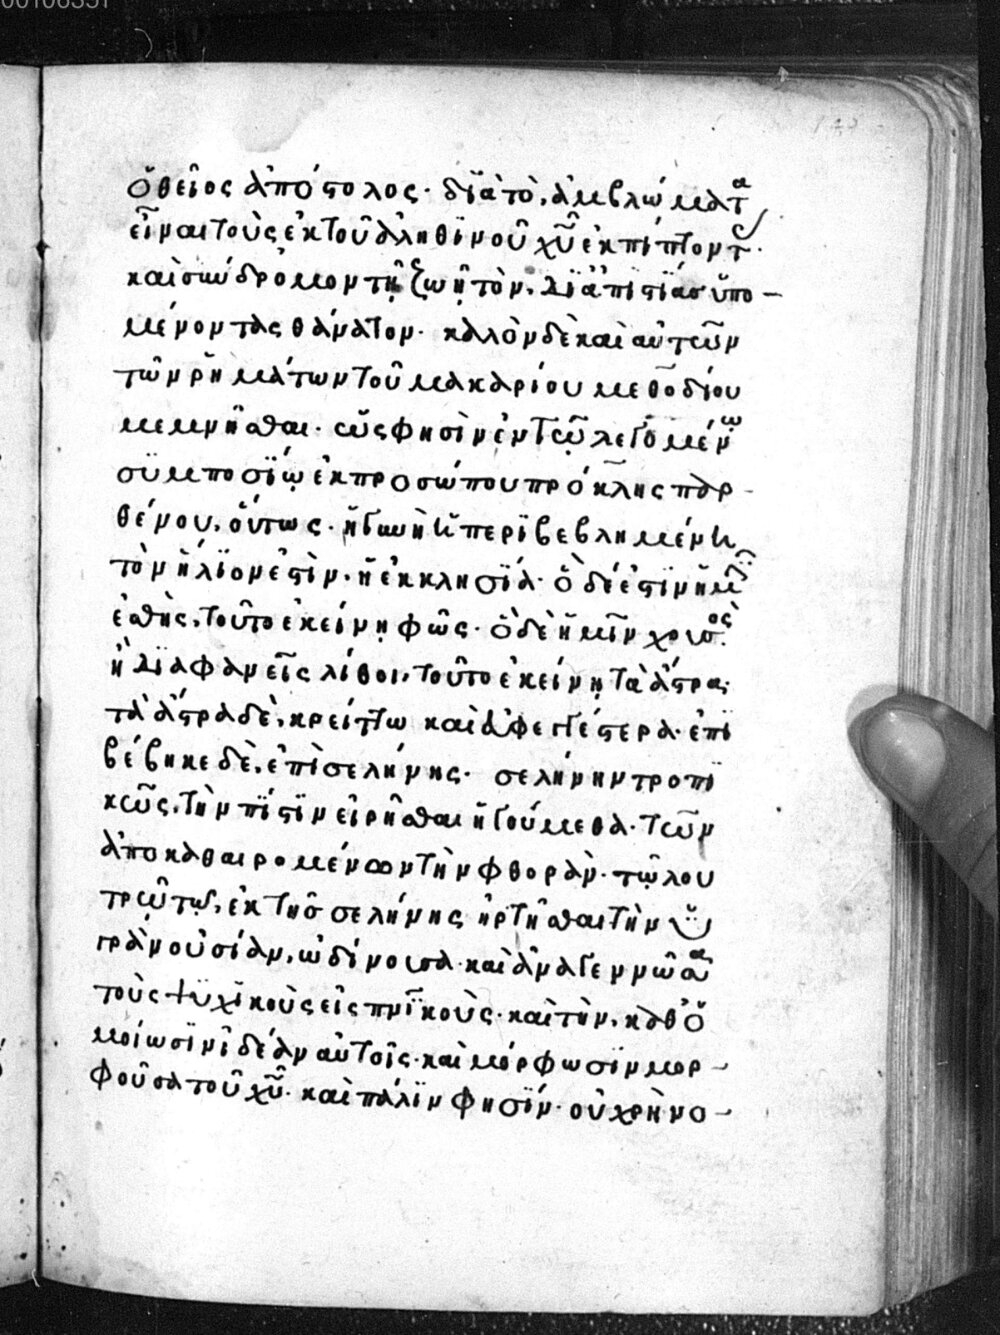 00106351
ὁ θεῖος ἀπόστολος· διὰ τὸ, ἀμβλώματα
εἶναι τοὺς ἐκ τοῦ ἀληθινοῦ χῦ ἐκπίπτοντ·
καὶ σὺν δρόμον τῇ ζωῇ τὸν, διὰ ἀπιστίας ὑπο-
μένοντας θάνατον· καλὸν δὲ καὶ αὐτῶν
τῶν ῥημάτων τοῦ μακαρίου μεθοδίου
μεμνῆσθαι· ὥς φησὶν ἐν τῷ λεγομένῳ
συμποσίῳ ἐκ προσώπου πρόκλης παρ-
θένου, οὕτως· ἡ γυνὴ ἡ περιβεβλημένη
τὸν ἥλιον ἐστὶν, ἡ ἐκκλησία· ὃ δέ ἐστιν ἡμῖν
ἐσθὴς, τοῦτο ἐκείνῃ φῶς· ὃ δὲ ἡμῖν χρυσὸς
ἢ διαφανεῖς λίθοι, τοῦτο ἐκείνῃ τὰ ἄστρα·
τὰ ἄστρα δὲ, κρείττω καὶ ἀφεγγέστερα· ἐπι
βέβηκε δὲ, ἐπὶ σελήνης· σελήνην τροπι
κῶς, τὴν πίστιν εἰρῆσθαι ἡγούμεθα· τῶν
ἀποκαθαιρομένων τὴν φθορὰν· τῷ λου
τρῷ τῷ, ἐκ τῆς σελήνης ἠρτῆσθαι τὴν ὑ
γρὰν οὐσίαν, ὠδίνουσα· καὶ ἀναγεννῶσα
τοὺς ψυχικοὺς εἰς πνικοὺς· καὶ τὴν, καθ' ὁ
μοίωσιν ἰδέαν αὐτοῖς· καὶ μόρφωσιν μορ-
φοῦσα τοῦ χῦ· καὶ πάλιν φησίν· οὐ χρὴ νο-